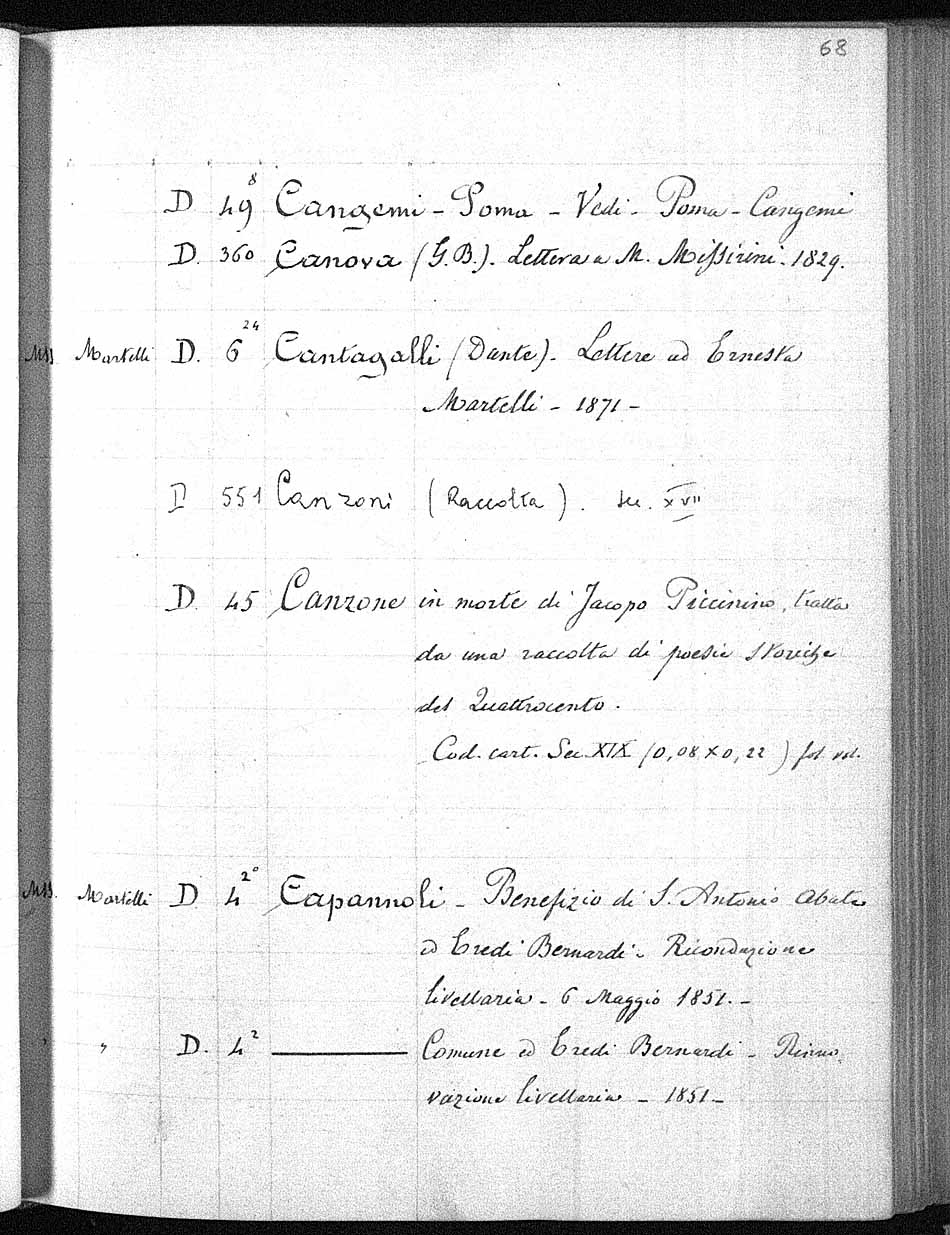 68
D 49⁸ Cangemi - Poma - Vedi - Poma - Cangemi
D. 360 Canova (G.B.). Lettera a M. Missirini. 1829.
MSS. Martelli D. 6²⁴ Cantagalli (Dante). Lettere ad Ernesta
Martelli - 1871 -
D 551 Canzoni (Raccolta). sec. XVII
D. 45 Canzone in morte di Jacopo Piccinino, tratta
da una raccolta di poesie storiche
del Quattrocento.
Cod. cart. Sec. XIX (0,08 x 0,22) fol. vol.
MSS. Martelli D 4²⁰ Capannoli - Benefizio di S. Antonio Abate
ed Eredi Bernardi - Riconduzione
livellaria - 6 Maggio 1851. -
" " D. 4² ——— Comune ed Eredi Bernardi - Rinno-
vazione livellaria - 1851 -